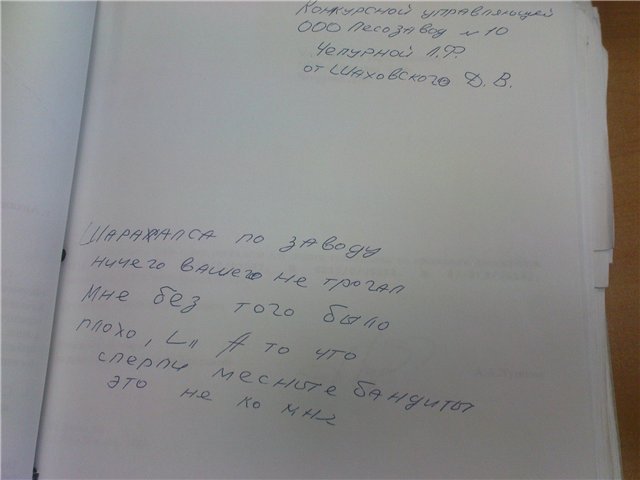 Конкурсной управляющей
ООО Лесозавод N 10
Чепурной Л.Ф.
от Шаховского Д. В.
Шарахалса по заводу
ничего вашего не трогал
Мне без того было
плохо, А то что
сперли месныте бандиты
это не ко мне